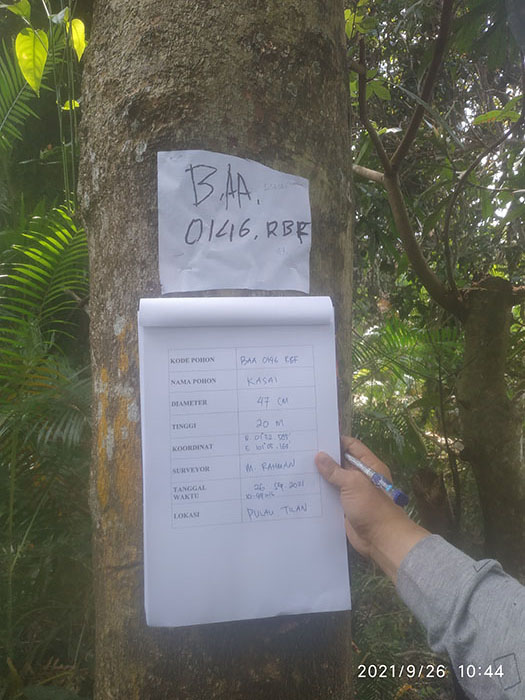 B.AA.
0146. RBF
KODE POHON BAA 0146 RBF
NAMA POHON KASAI
DIAMETER 47 CM
TINGGI 20 M
KOORDINAT
SURVEYOR M. RAHMAN
TANGGAL 26. 09. 2021
WAKTU
LOKASI PULAU TILAN
2021/9/26 10:44